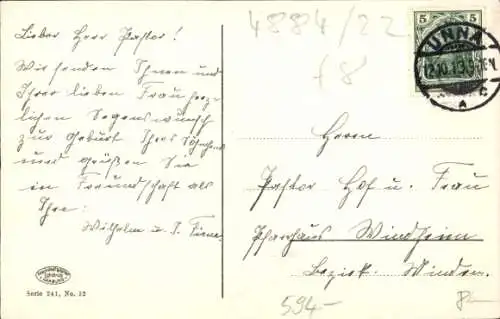 Lieber Herr Pastor!
Wir senden Ihnen und
Ihrer lieben Frau herz-
lichen Segenswunsch
zur Geburt Ihres Söhnchens
und grüßen Sie
in Freundschaft als
Ihre
Wilhelm u. T.
Serie 241, No. 12
4884/22
18
5 5
UNNA
12.10.13.
Herrn
Pastor Hof u. Frau
Pfarrhaus Windheim
Bezirk. Minden.
594-